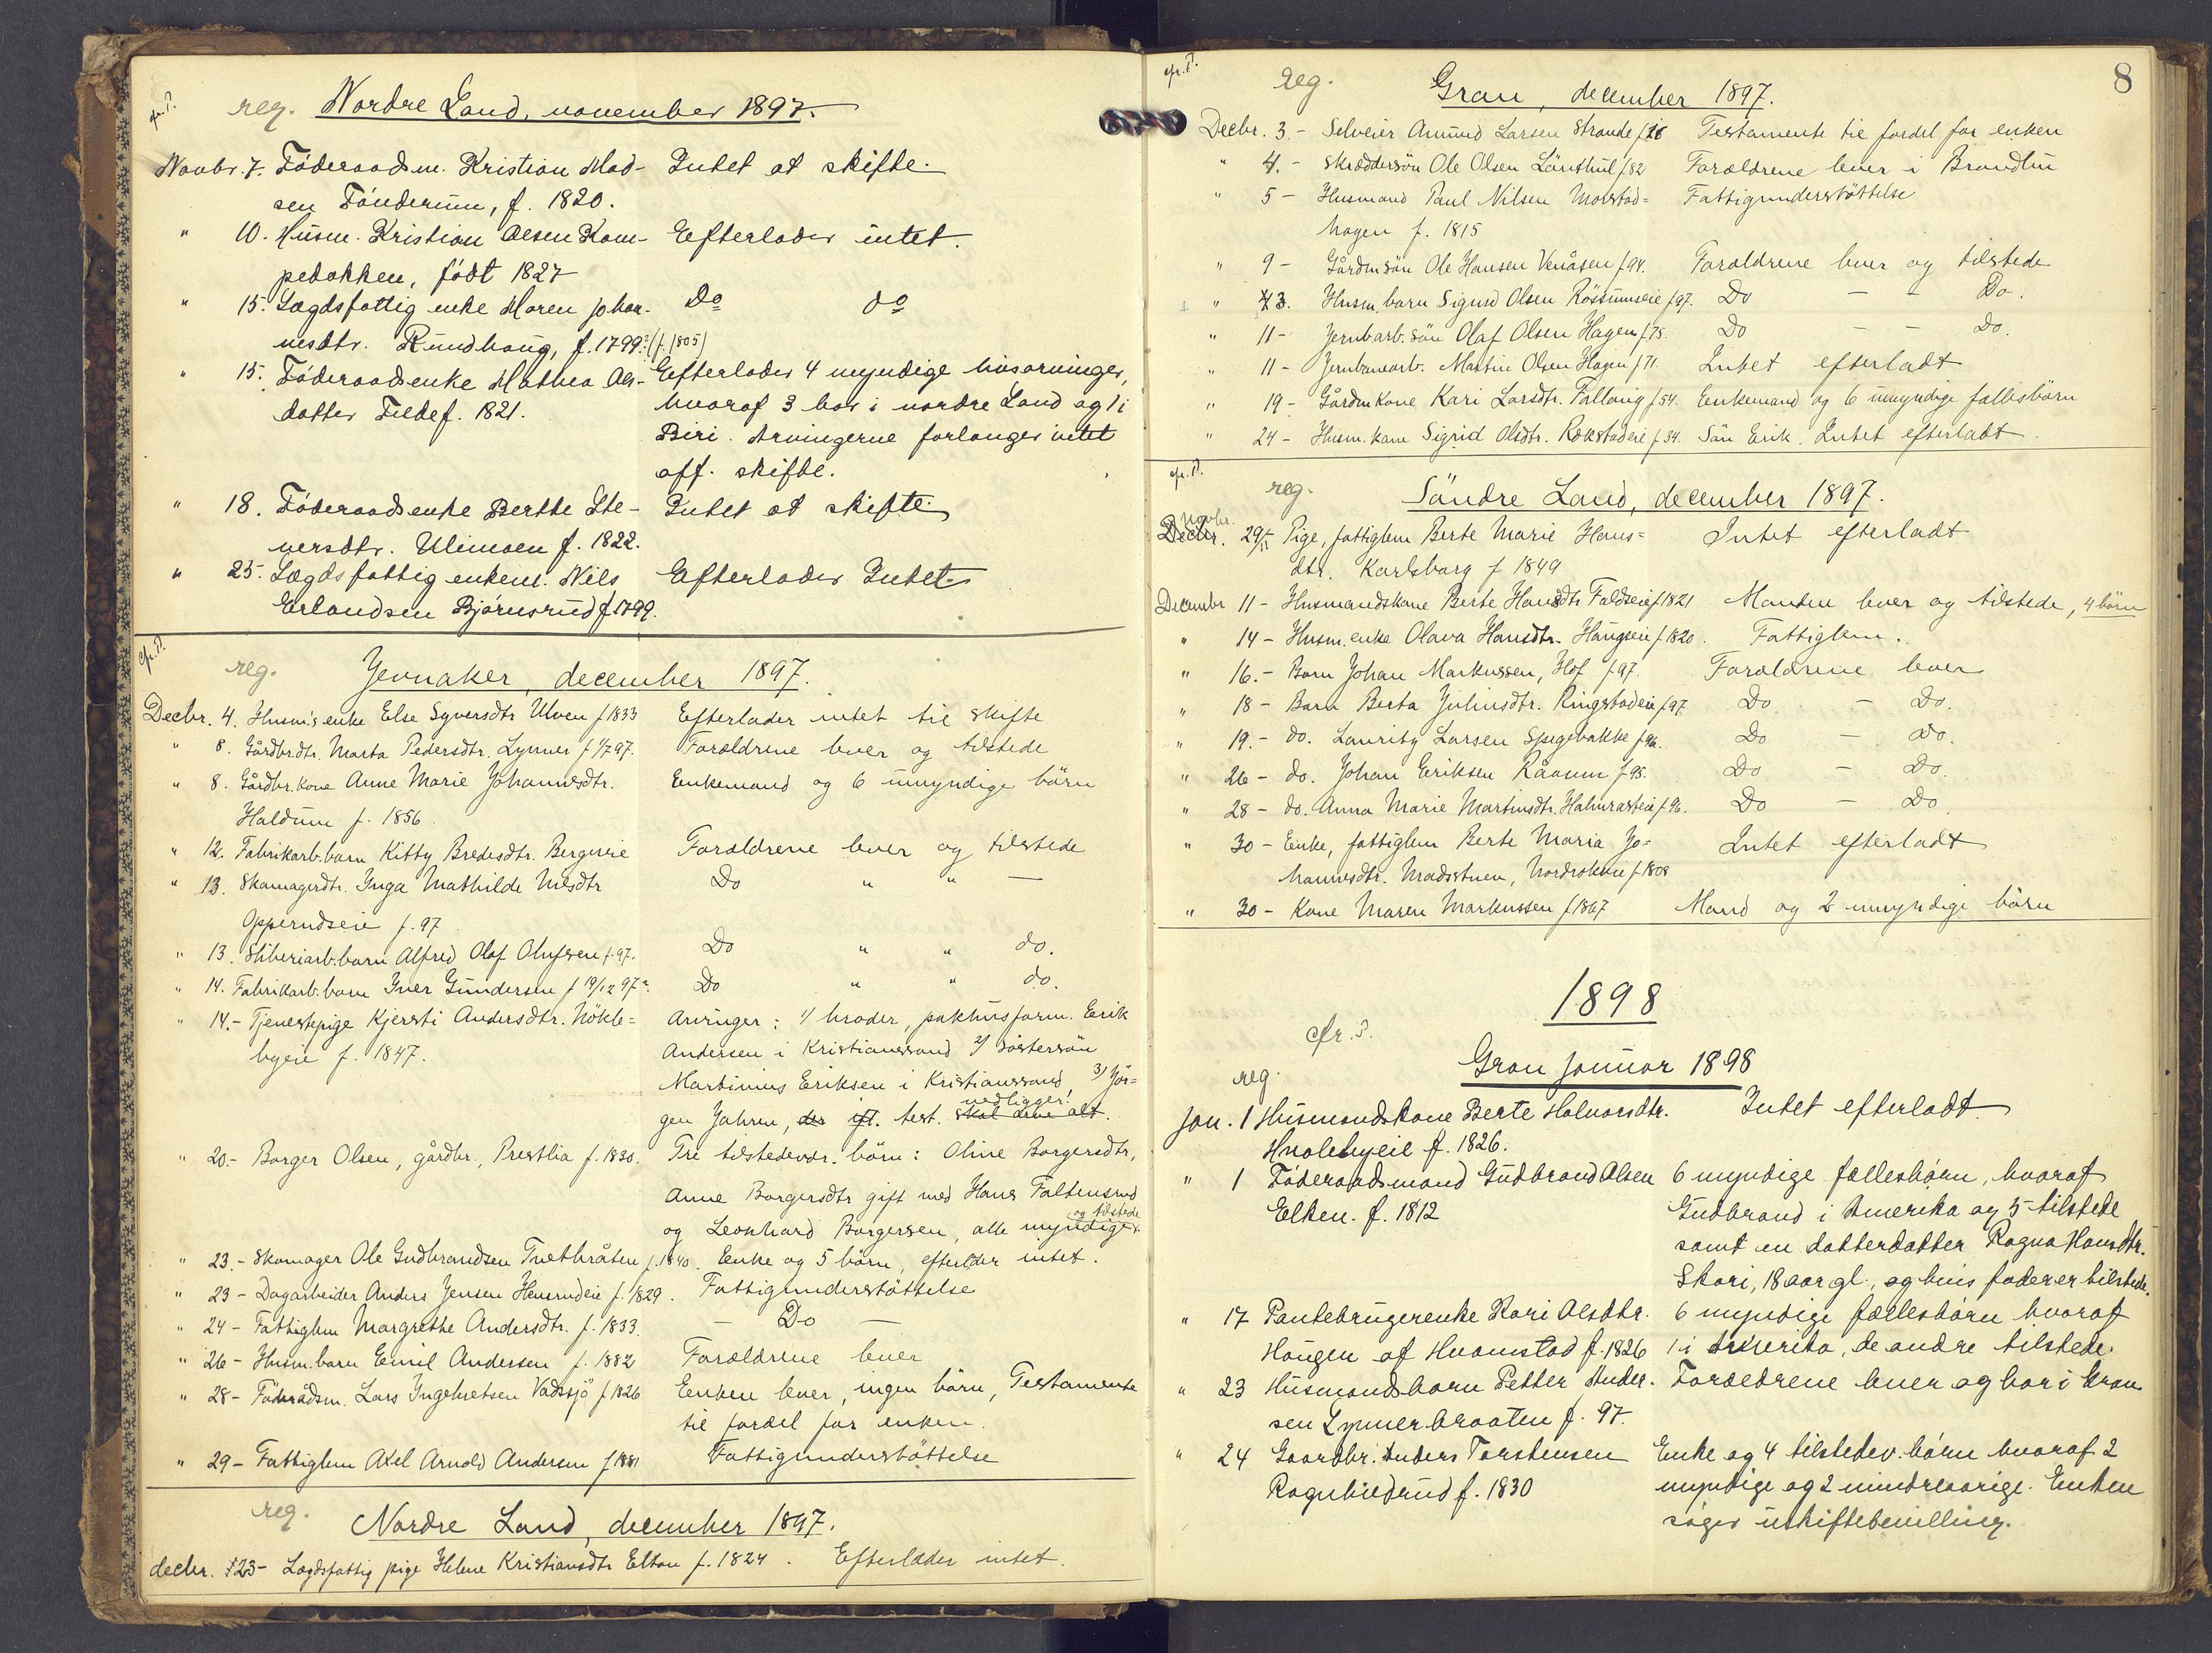 cfr. P.
reg. Nordre Land, november 1897.
Novbr. 7. Föderaadsm. Kristian Mad- Intet at skifte.
sen Fönderum, f. 1820.
" 10. Husm. Kristian Olsen Kam- Efterlader intet.
pebakken, födt 1827
" 15. Lægdsfattig enke Maren Johan- Do do
nesdtr. Rundhaug, f. 1799? (f. 1805)
" 15. Föderaadsenke Mathea Ols- Efterlader 4 myndige livsarvinger,
datter Filde f. 1821. hvoraf 3 bor i nordre Land og 1 i
Biri. Arvingerne forlanger intet
off. skifte.
" 18. Föderaadsenke Berthe Ste- Intet at skifte.
nersdtr. Ulimoen f. 1822.
" 25. Lægdsfattig enkem. Nils Efterlader Intet.
Erlandsen Björnsrud f. 1799.
cfr. P.
reg. Jevnaker, december 1897.
Decbr. 4. Husm's enke Else Syversdtr Ulven f. 1833 Efterlader intet til skifte
" 8. Gårdbr.dtr. Marta Pedersdtr. Lynner f. 1/7 97. Forældrene lever og tilstede
" 8. Gårdbr. kone Anne Marie Johannesdtr. Enkemand og 6 umyndige börn
Haldum f. 1856
" 12. Fabrikarb. barn Kitty Bredesdtr. Bergseie Forældrene lever og tilstede
" 13. Skomagerdtr. Inga Mathilde Nilsdtr Do " " —
Opperudseie f. 97
" 13. Sliberiarb. barn Alfred Olaf Olufsen f. 97. Do " " do.
" 14. Fabrikarb. barn Iver Gundersen f. 10/12 97. Do " " do.
" 14. - Tjenestepige Kjersti Andersdtr. Nökle= Arvinger: 1/ broder, pakhusform. Erik
byeie f. 1847. Andersen i Kristianssand 2/ söstersön
Martinius Eriksen i Kristianssand, 3/ Jör=
gen Jahren, der ifl. test. skal arve alt. nedligger!
" 20. - Borger Olsen, gårdbr., Prestlia f. 1830. Tre tilstedevær. börn: Oline Borgersdtr,
Anne Borgersdtr gift med Hans Faltensrud
og Leonhard Borgersen, alle myndige og tilstede
" 23. - Skomager Ole Gudbrandsen Tvetbråten f. 1840. Enke og 5 börn, efterlder intet.
" 23 - Dagarbeider Anders Jensen Hensrudeie f. 1829. Fattigunderstöttelse
" 24 - Fattiglem Margrethe Andersdtr. f. 1833. — Do —
" 26 - Husm. barn Emil Andersen f. 1882 Forældrene lever
" 28 - Föderådsm. Lars Ingebretsen Vadssjö f. 1826 Enken lever, ingen börn, Testamente
til fordel for enken.
" 29 - Fattiglem Axel Arnold Andersen f. 1881 Fattigunderstöttelse
reg. Nordre Land, december 1897.
decbr. 23 - Lægdsfattig pige Helene Kristiansdtr Elton f. 1824. Efterlader intet.
8
cfr. P.
reg. Gran, december 1897.
Decbr. 3. - Selveier Amund Larsen Strande f. 26 Testamente til fordel for enken
" 4. - Skræddersön Ole Olsen f. 82 Forældrene lever i Brandbu
" 5 - Husmand Paul Nilsen Morstad= Fattigunderstöttelse
hagen f. 1815
" 9 - Gårdm. sön Ole Hansen Venåsen f. 94. Forældrene lever og tilstede
" 3. Husm. barn Sigurd Olsen Rössumseie f. 97. Do — - Do.
" 11 - Jernbarb. sön Olaf Olsen Hagen f. 75. Do — — Do.
" 11 - Jernbanearb. Martin Olsen Hagen f. 71. Intet efterladt
" 19 - Gårdm kone Kari Larsdtr. Fallang f. 54. Enkemand og 6 umyndige fællesbörn
" 24 - Husm. kone Sigrid Olsdtr. Rækstadeie f. 34. Sön Erik. Intet efterladt.
cfr. P.
reg. Söndre Land, december 1897.
Novbr.
Decbr. 29/11 Pige, fattiglem Berte Marie Hans= Intet efterladt
dtr. Karlsborg f 1849
December 11 - Husmandskone Berte Hansdtr Faldseie f. 1821 Manden lever og tilstede, 4 börn
" 14 - Husm. enke Olava Hansdtr. Haugseie f. 1820. Fattiglem.
" 16. - Barn Johan Markussen, Hof f. 97. Forældrene lever
" 18 - Barn Berta Juliusdtr. Ringstadeie f. 97. Do — Do.
" 19. - do. Lauritz Larsen Spegebakke f. 96. Do — Do.
" 26 - do. Johan Eriksen Råaum f. 95. Do — Do.
" 28 - do. Anna Marie Martinsdtr. f. 96. Do — Do
" 30 - Enke, fattiglem Berte Maria Jo= Intet efterladt
hannesdtr. Madsstuen, f. 1808
" 30 - Kone Maren Markussen f. 1867 Mand og 2 umyndige börn
1898
cfr. P.
reg. Gran januar 1898
Jan. 1 Husmandskone Berte Halvorsdtr. Intet efterladt.
Hvalebyeie f. 1826.
" 1 Föderaadsmand Gudbrand Olsen 6 myndige fællesbörn, hvoraf
Elken. f. 1812 Gudbrand i Amerika og 5 tilstede
samt en datterdatter Ragna Hansdtr.
Skari, 18 aar gl., og hvis fader er tilstede.
" 17 Pantebrugerenke Kari Olsdtr. 6 myndige fællesbörn hvoraf
Haugen af Hvamstad f. 1826 1 i Amerika, de andre tilstede.
" 23 Husmandsbarn Petter Ander- Forældrene lever og bor i Gran
sen Lynnerbraaten f. 97.
" 24 Gaardbr. Anders Torstensen Enke og 4 tilstedev. börn hvoraf 2
Ragnhildrud f. 1830 myndige og 2 mindreaarige. Enken
söger uskiftebevilling.